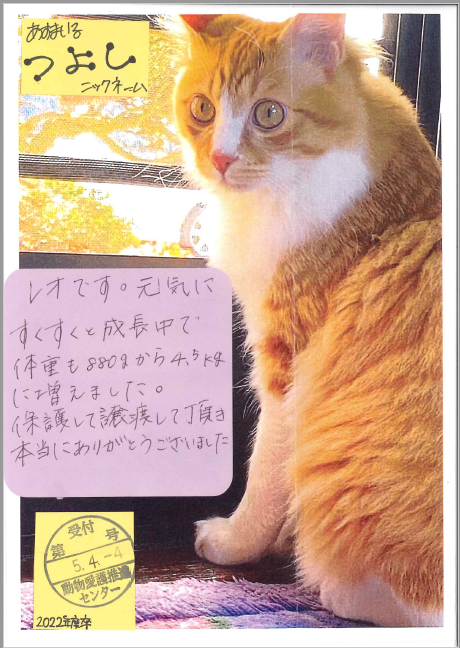 つよし
ニックネーム
レオです。元気に
すくすくと成長中で
体重も880gから4.5kg
に増えました。
保護して譲渡して頂き
本当にありがとうございました
受付
第 号
5.4.-4
動物愛護推進
センター
2022年度卒